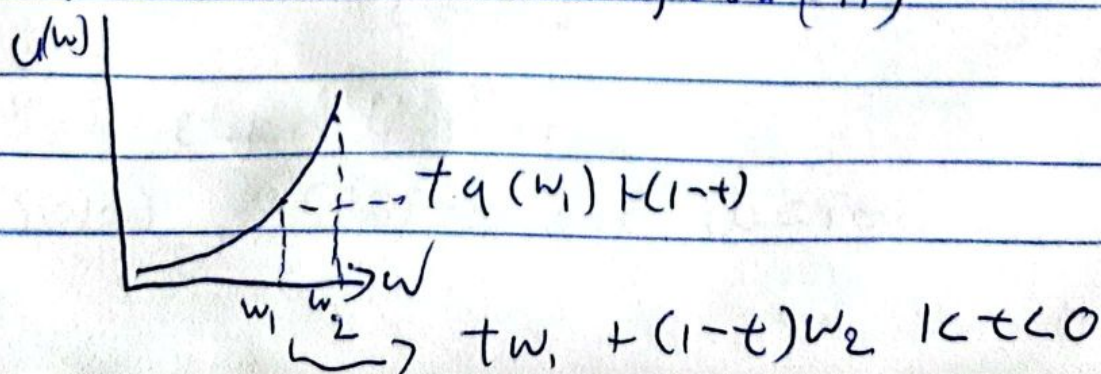 U(w)
t q (w₁) + (1-t)
w₁ w₂ → w
tw₁ + (1-t)w₂ 1< t<0